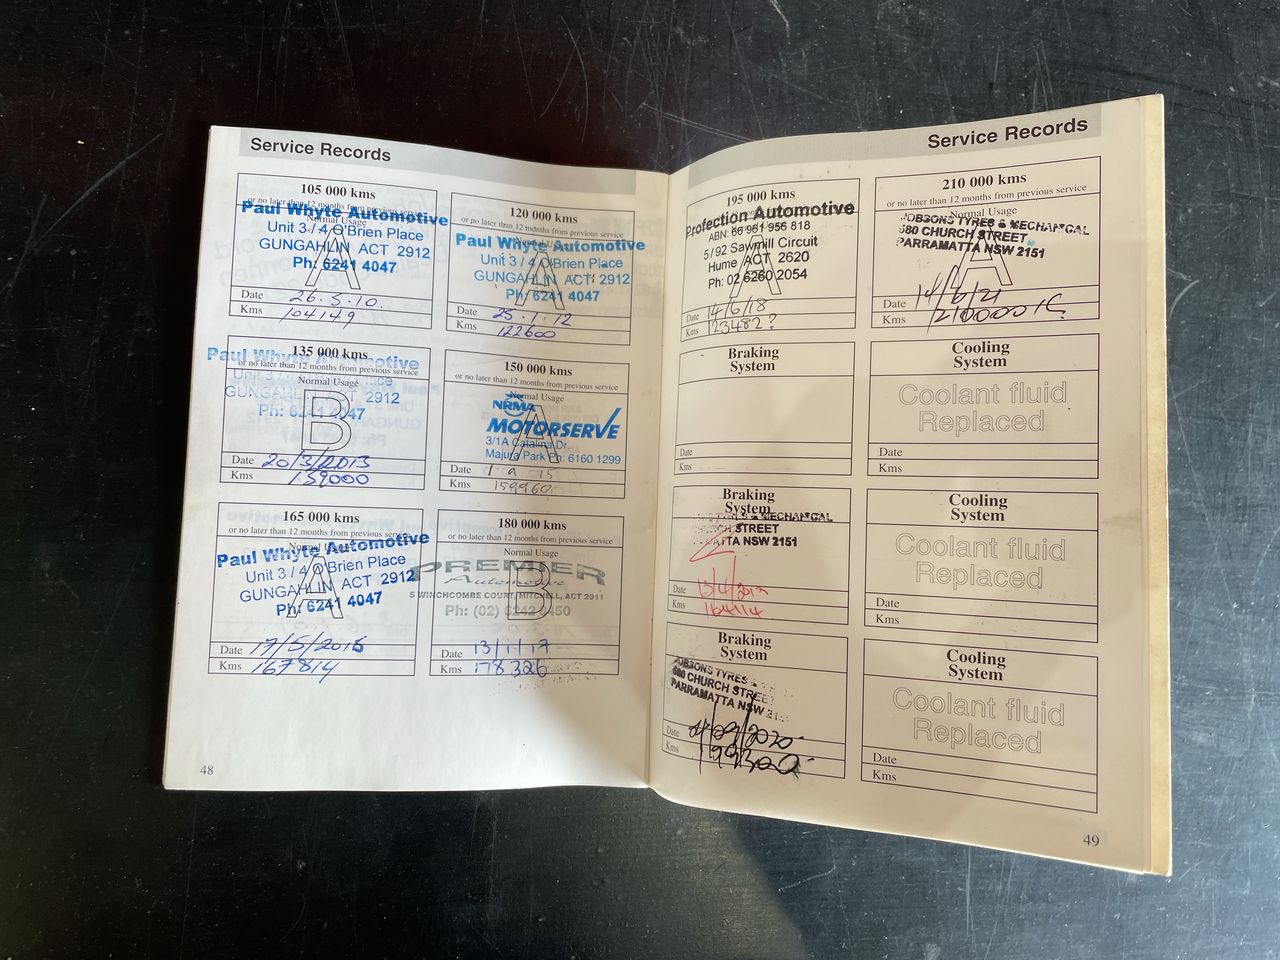 Service Records
105 000 kms
or no later than 12 months from previous service
Normal Usage
A
Paul Whyte Automotive
Unit 3 / 4 O'Brien Place
GUNGAHLIN ACT 2912
Ph: 6241 4047
Date 26.5.10.
Kms 104149
120 000 kms
or no later than 12 months from previous service
Normal Usage
A
Paul Whyte Automotive
Unit 3 / 4 O'Brien Place
GUNGAHLIN ACT 2912
Ph: 6241 4047
Date 25.1.12
Kms 122600
135 000 kms
or no later than 12 months from previous service
Normal Usage
B
Paul Whyte Automotive
Unit 3
GUNGAHL ACT 2912
Ph: 6241 4047
Date 20/3/2013
Kms 139000
150 000 kms
or no later than 12 months from previous service
Normal Usage
A
NRMA
MOTORSERVE
3/1A Catalina Dr.
Majura Park Ph: 6160 1299
Date 1 9 15
Kms 159960
165 000 kms
or no later than 12 months from previous service
Normal Usage
A
Paul Whyte Automotive
Unit 3 / 4 O'Brien Place
GUNGAHLIN ACT 2912
Ph: 6241 4047
Date 17/5/2016
Kms 167814
180 000 kms
or no later than 12 months from previous service
Normal Usage
B
PREMIER
Automotive
5 WINCHCOMBE COURT, MITCHELL, ACT 2911
Ph: (02) 6242
Date 13/1/17
Kms 178326
48
Service Records
195 000 kms
A
Protection Automotive
ABN: 66 961 956 818
5 / 92 Sawmill Circuit
Hume ACT 2620
Ph: 02 6260 2054
Date 14/6/18
Kms 23482?
210 000 kms
or no later than 12 months from previous service
Normal Usage
A
JOBSONS TYRES & MECHANICAL
680 CHURCH STREET
PARRAMATTA NSW 2151
Date 14/6/21
Kms 210000
Braking
System
Date
Kms
Cooling
System
Coolant fluid
Replaced
Date
Kms
Braking
System
& MECHANICAL
STREET
ATTA NSW 2151
Date
Kms 164114
Cooling
System
Coolant fluid
Replaced
Date
Kms
Braking
System
JOBSONS TYRES &
680 CHURCH STREET
PARRAMATTA NSW
Date /09/2020
Kms 199300
Cooling
System
Coolant fluid
Replaced
Date
Kms
49